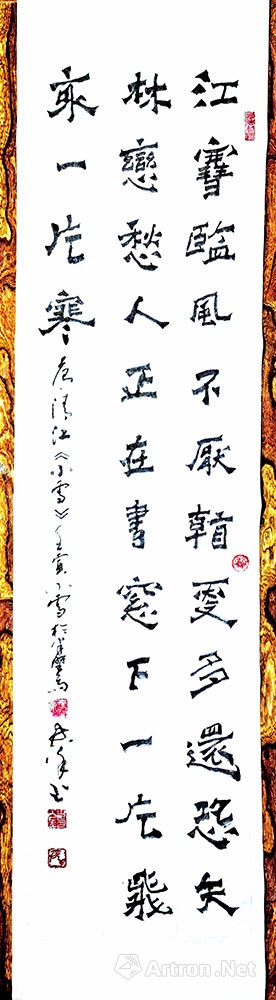 江雪臨風不厭更多還恐失
林戀愁人正在書窓下一片飛
來一片寒 唐·清江《小雪》壬寅小雪於
书
Artron.Net